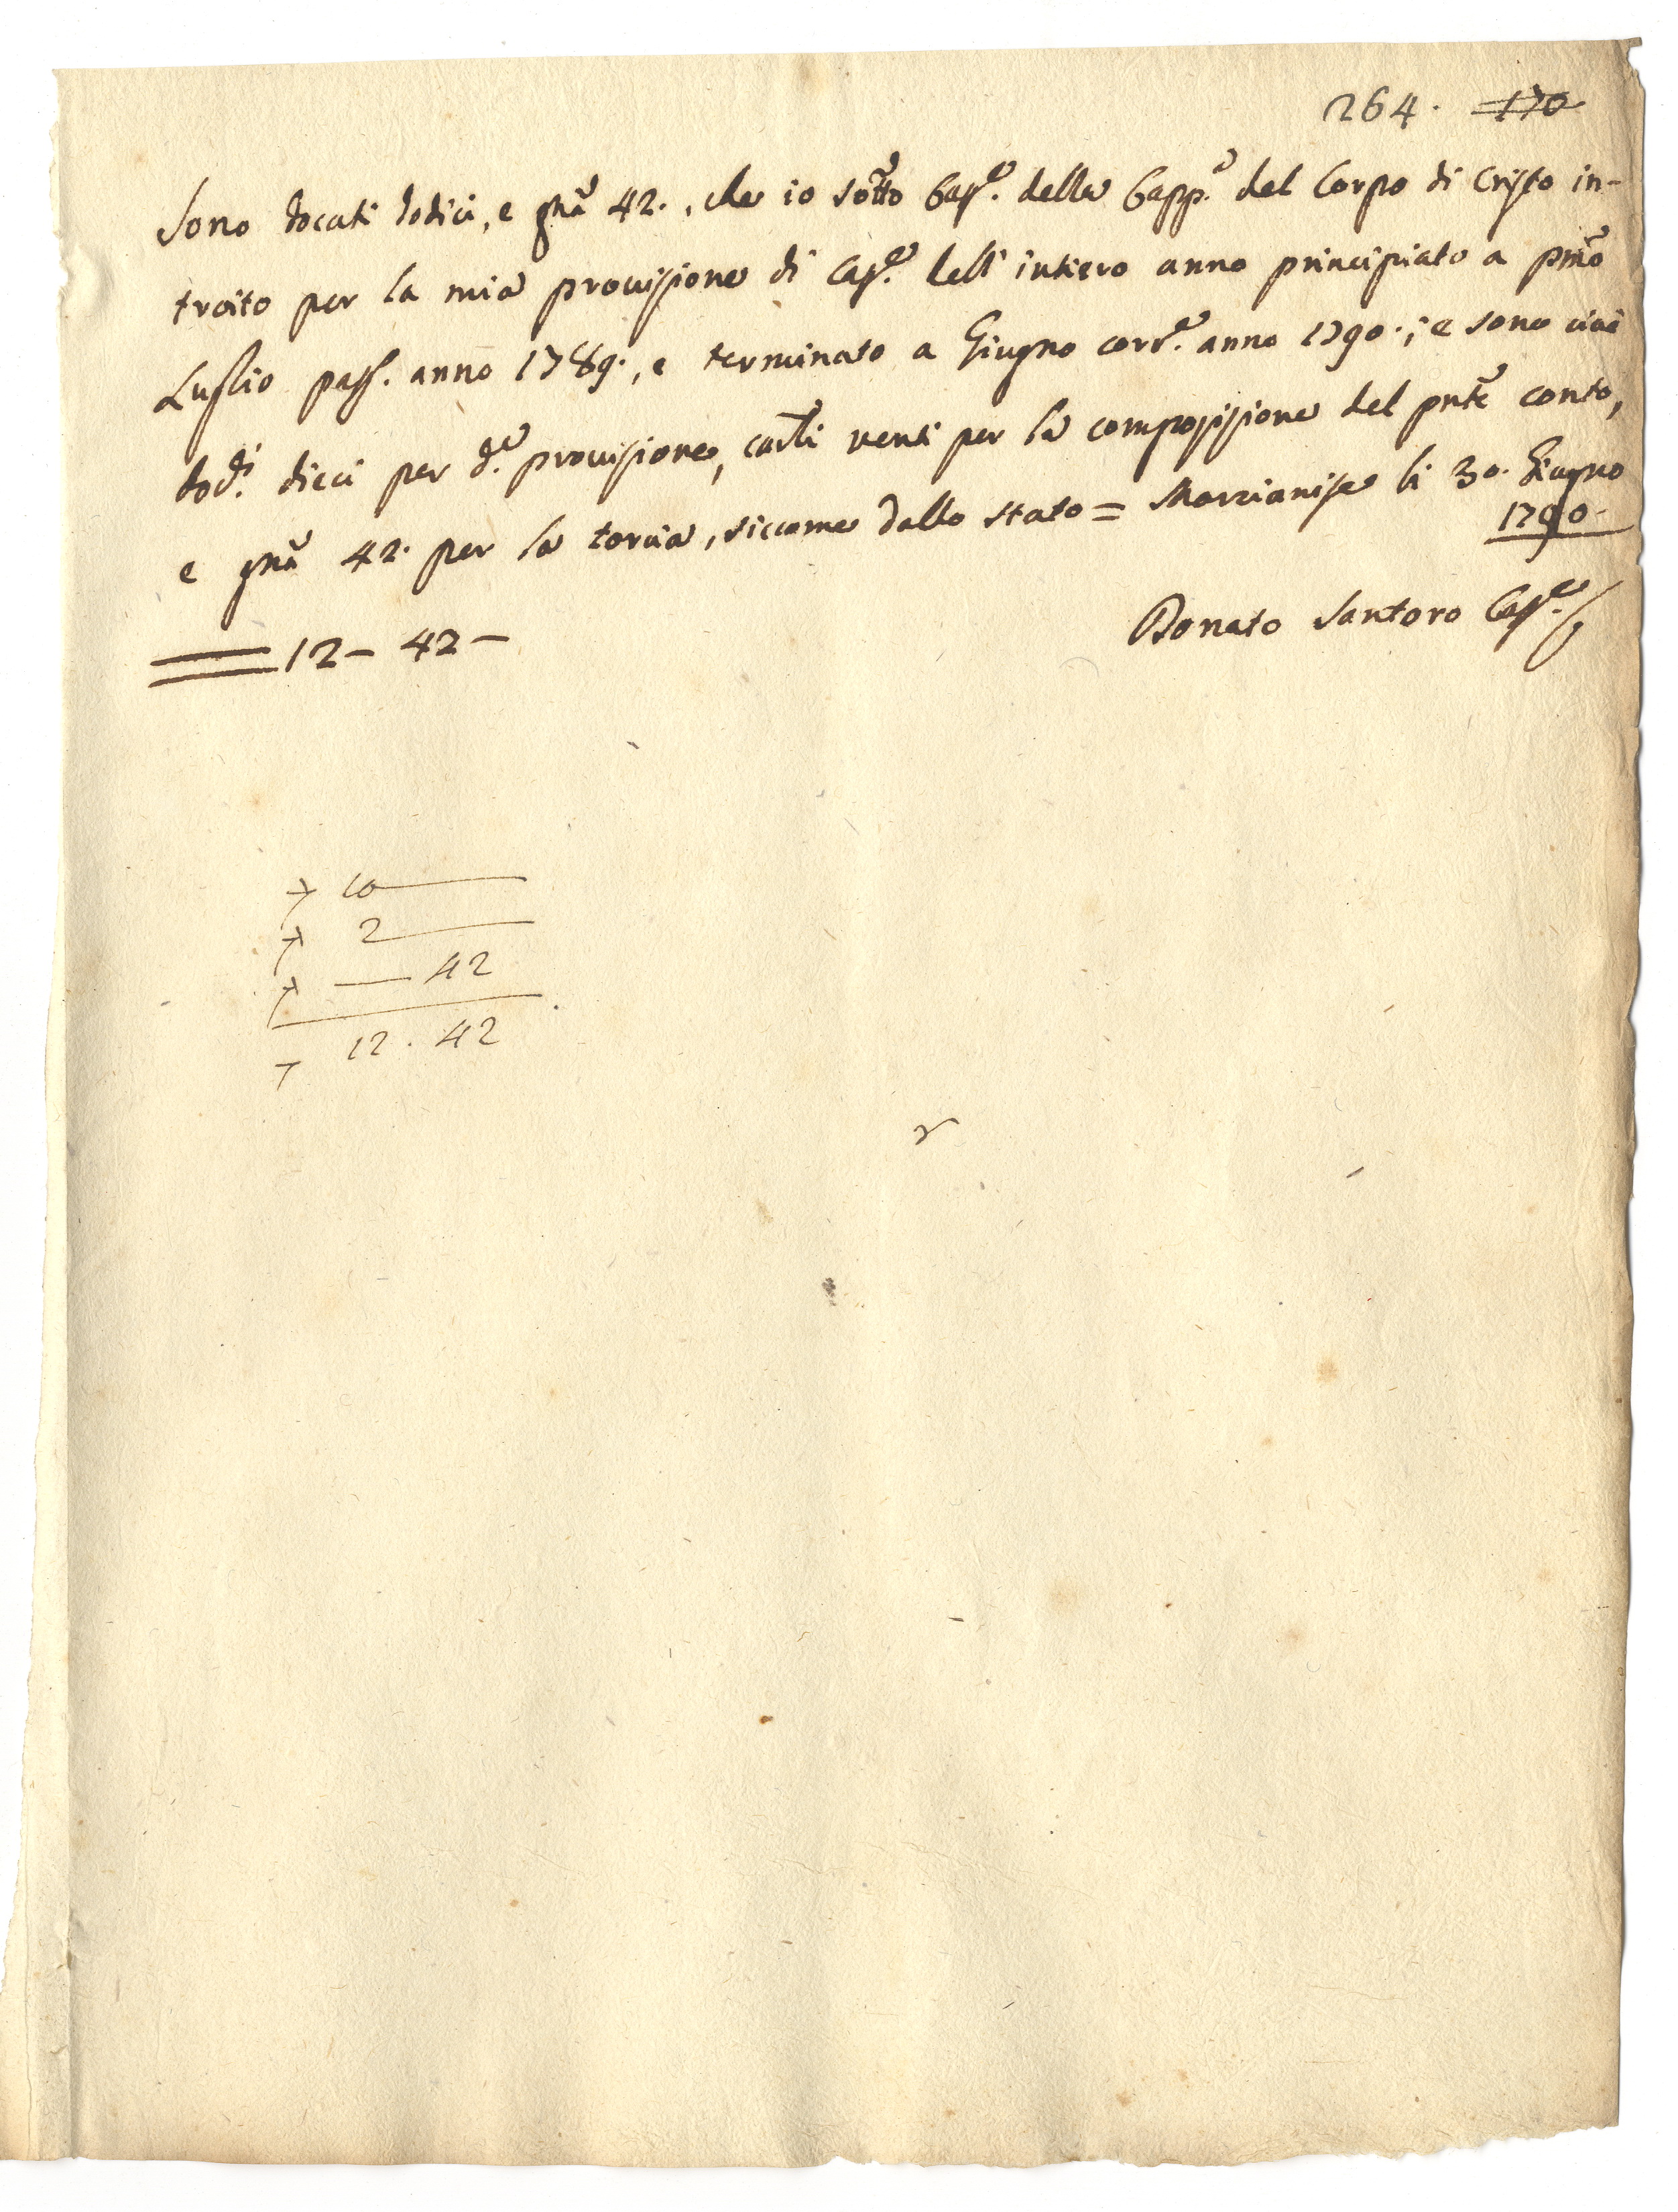 264. 170
Sono docati dodici, e gnã 42., che io sotto Cass.e della Capp.a del Corpo di Cristo in-
troito per la mia provisione di Cass.e dell'intiero anno principiato a pmõ
Luglio pass. anno 1789., e terminato a Giugno corr.e anno 1790.; e sono cioè
doc.i dieci per d.a provisione, carli venti per la composizione del pnte conto,
e gnã 42. per la torcia, siccome dallo stato = Marcianise li 30. Giugno
1790.
Donato Santoro Cass.e
12 - 42 -
10
2
42
12. 42